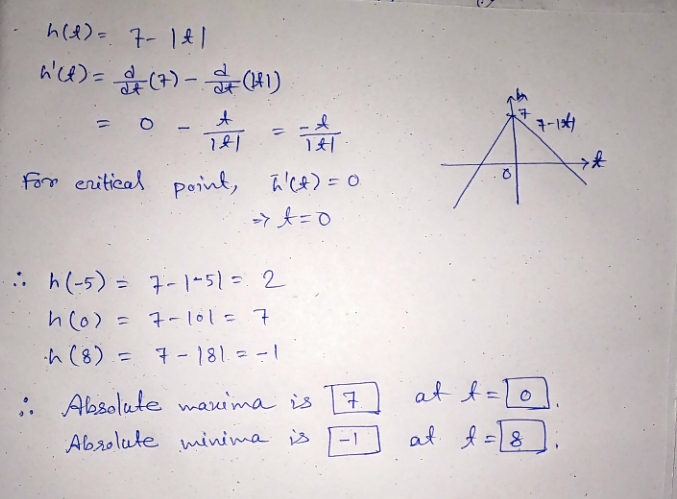 h(t) = 7 - |t|
h'(t) = d/dt (7) - d/dt (|t|)
= 0 - t/|t| = -t/|t|
For critical point, h'(t) = 0
⇒ t = 0
h
7
7-|t|
t
0
∴ h(-5) = 7 - |-5| = 2
h(0) = 7 - |0| = 7
h(8) = 7 - |8| = -1
∴ Absolute maxima is 7 at t = 0.
Absolute minima is -1 at t = 8.